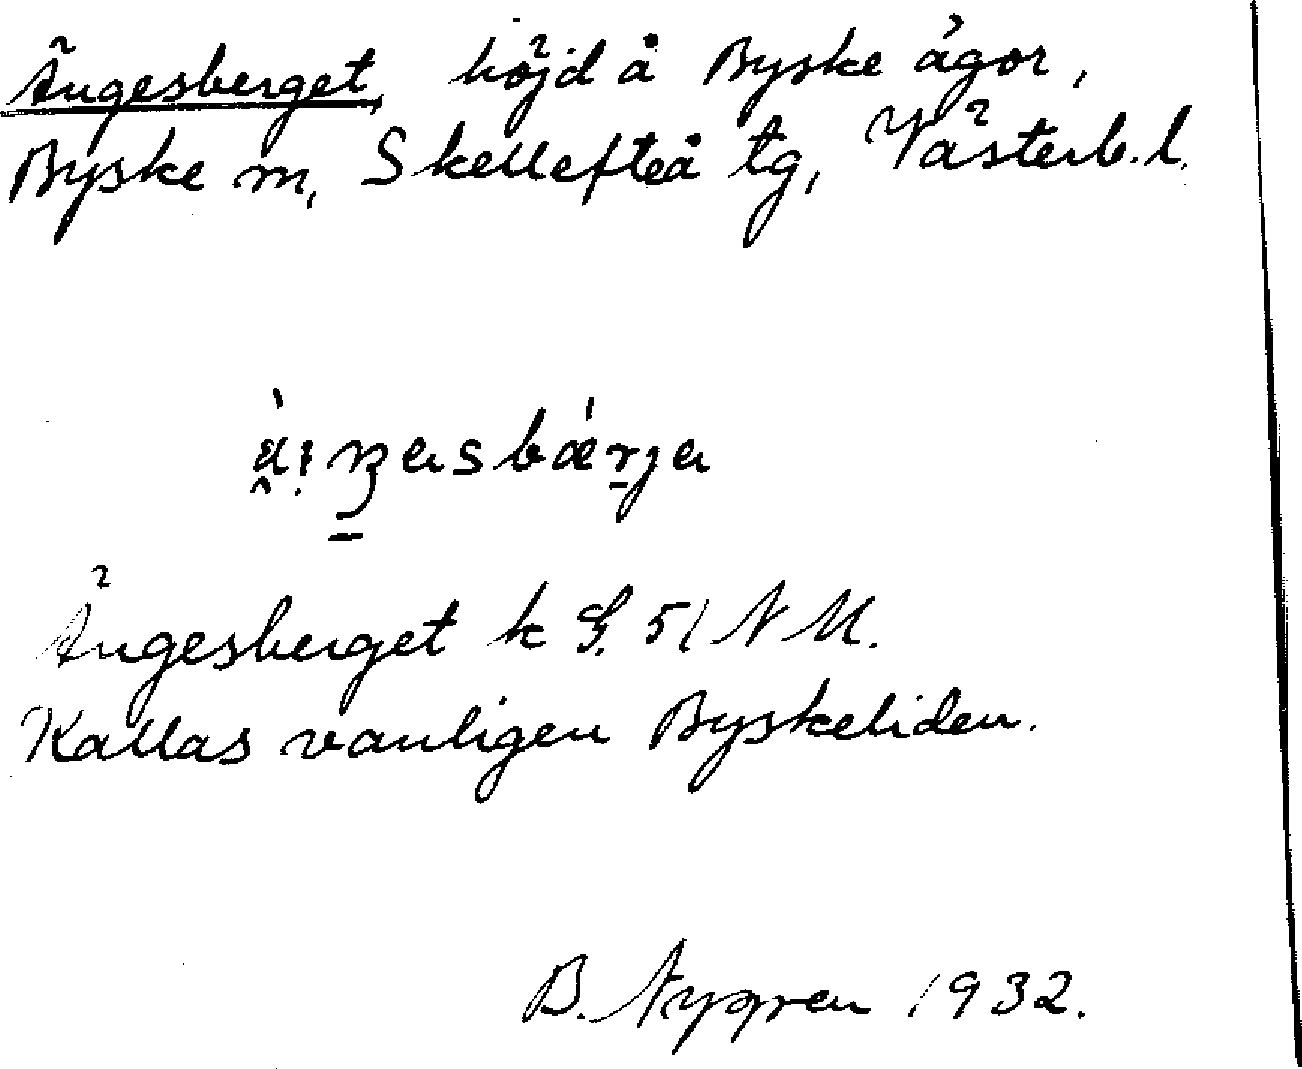 Ängesberget, höjd å Byske ägor,
Byske sn, Skellefteå tg, Västerb. l.
Ängesberget k G. 51 N M.
Kallas vanligen Byskeliden.
B. Nygren 1932.